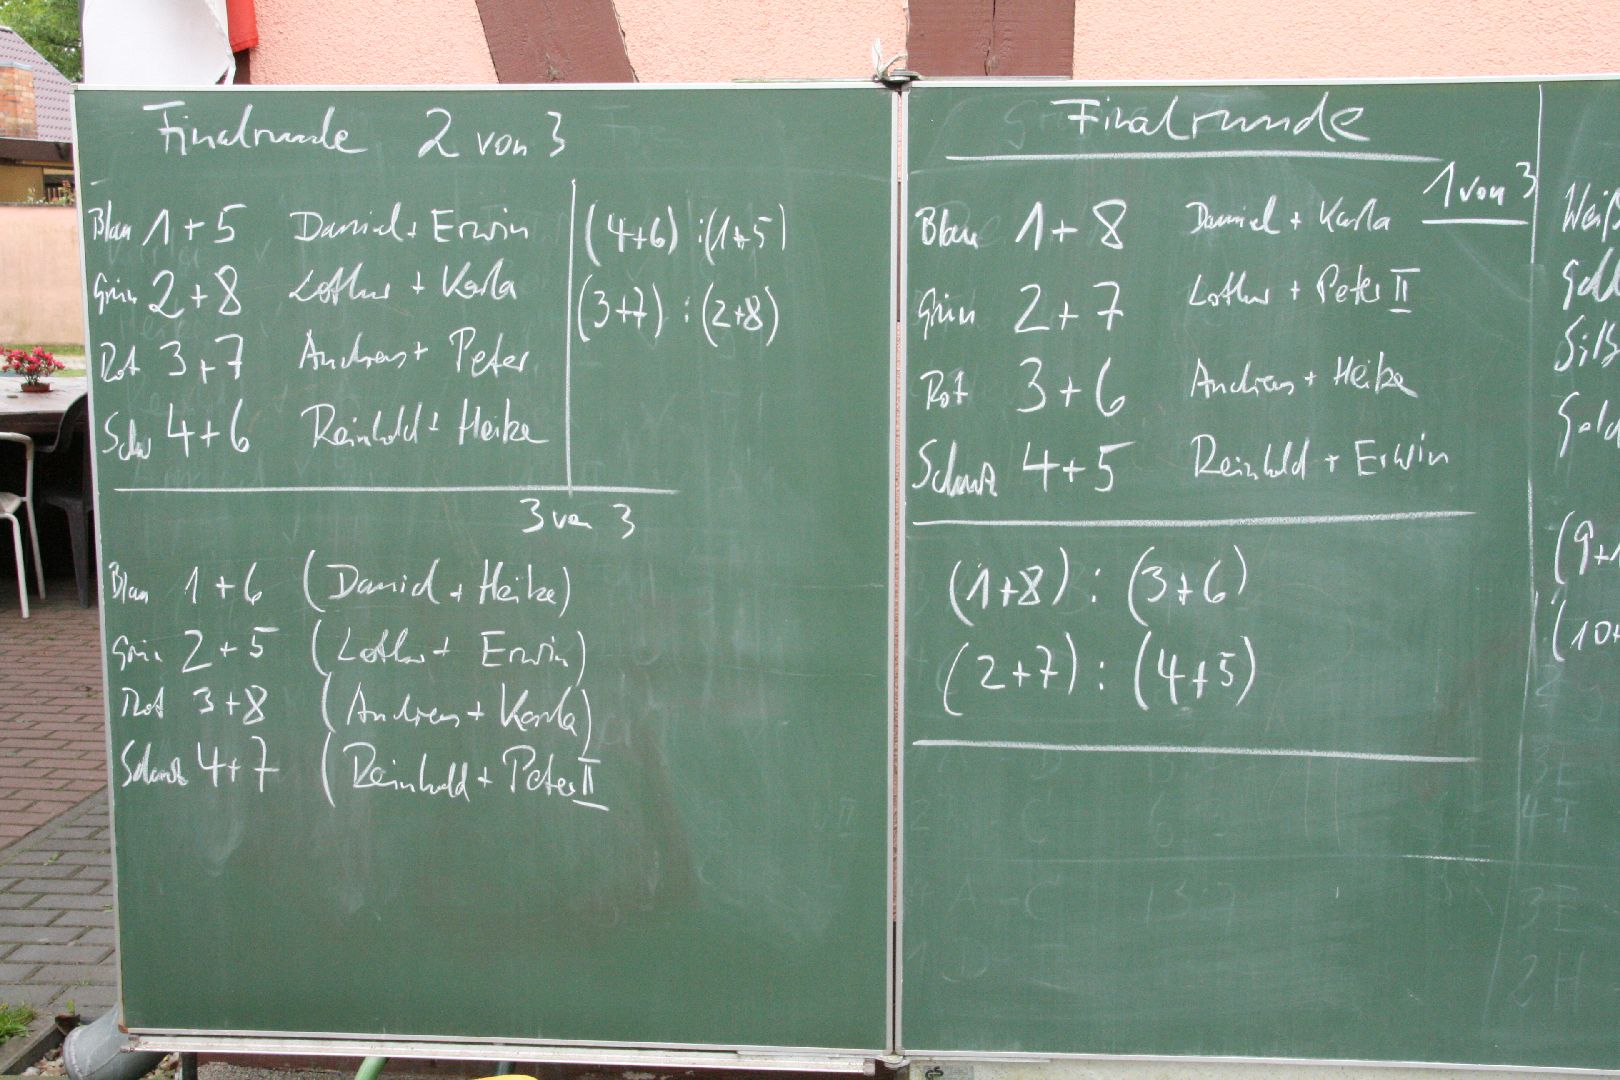 Finalrunde 2 von 3
Blau 1+5 Daniel + Erwin
Grün 2+8 Lothar + Karla
Rot 3+7 Andreas + Peter
Schw 4+6 Reinhold + Heike
(4+6) : (1+5)
(3+7) : (2+8)
3 von 3
Blau 1+6 (Daniel + Heike)
Grün 2+5 (Lothar + Erwin)
Rot 3+8 (Andreas + Karla)
Schwarz 4+7 (Reinhold + Peter II
Finalrunde
1 von 3
Blau 1+8 Daniel + Karla
Grün 2+7 Lothar + Peter II
Rot 3+6 Andreas + Heike
Schwarz 4+5 Reinhold + Erwin
(1+8) : (3+6)
(2+7) : (4+5)
Weiß
Gold
(9+
(10+